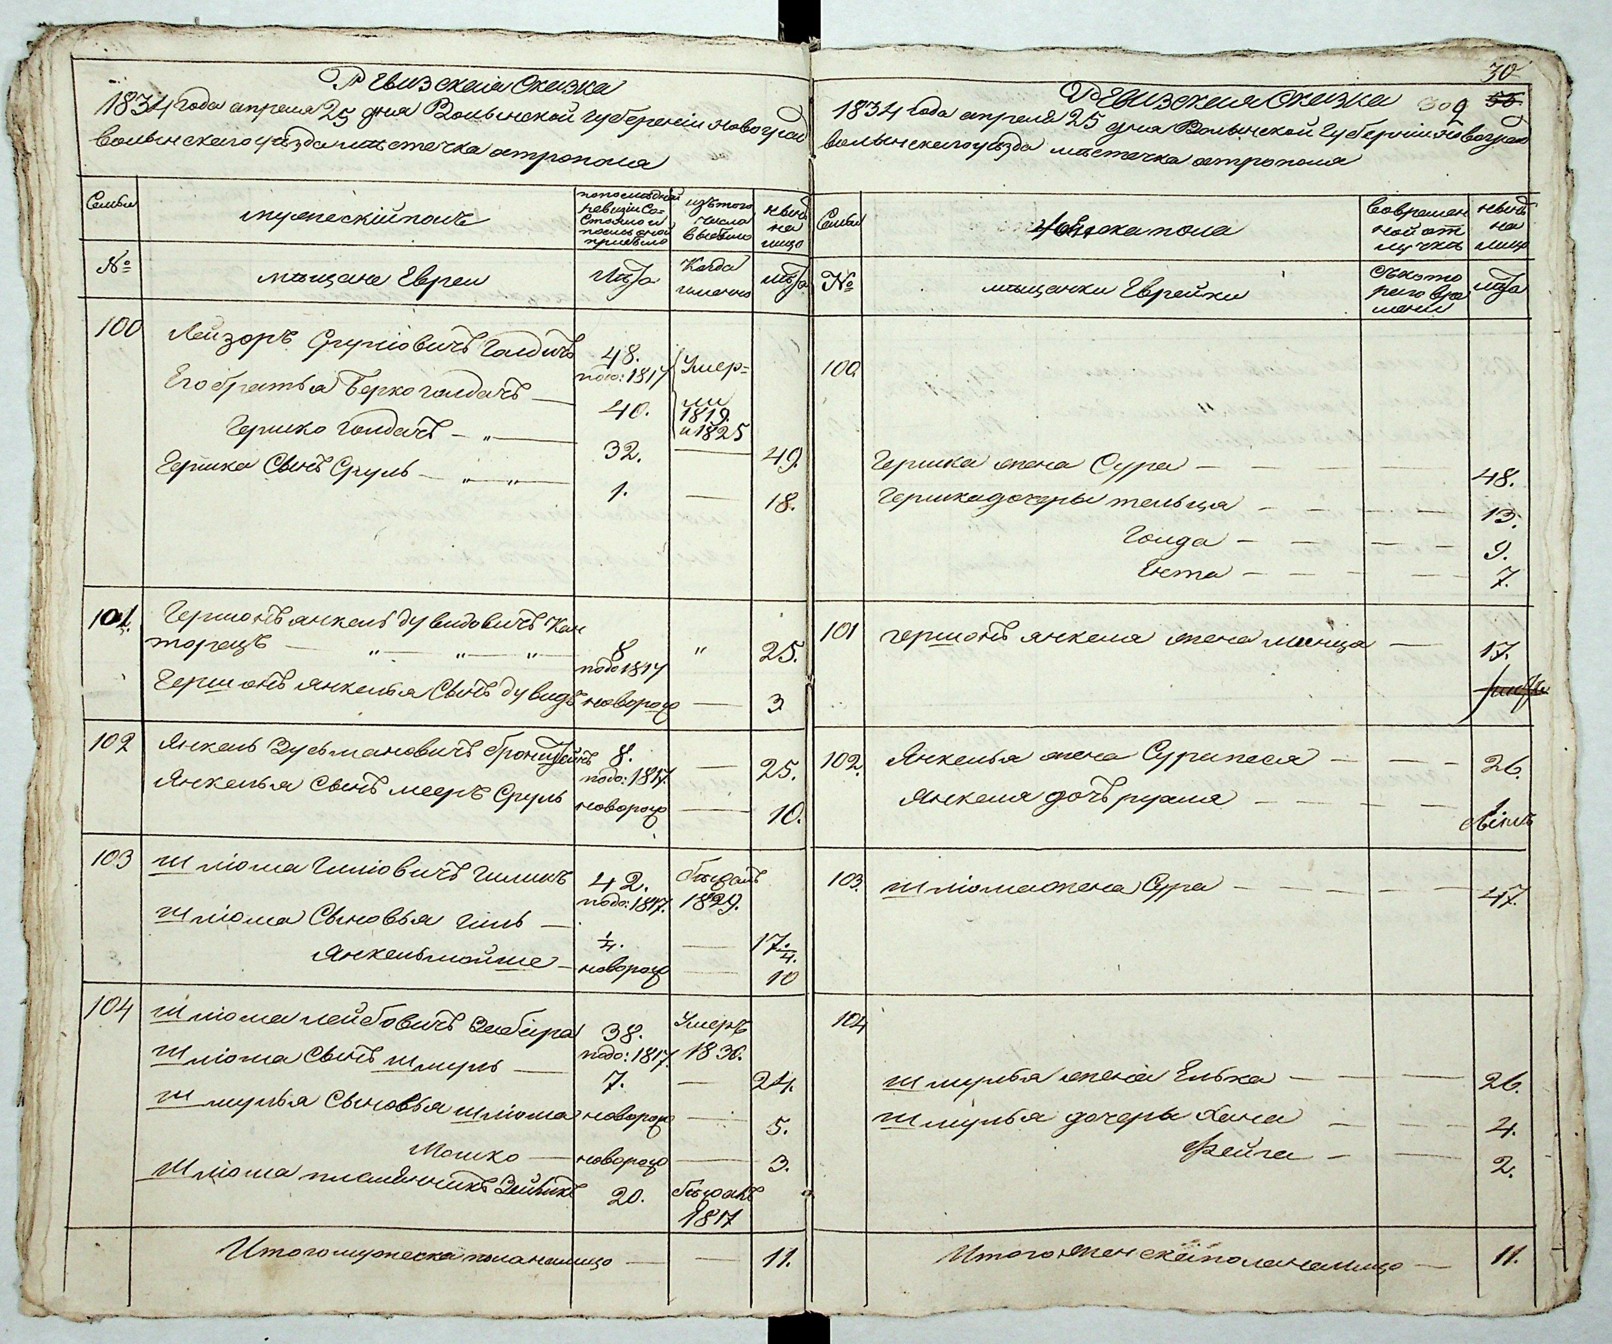 Ревизская Сказка
1834 года апреля 25 дня Волынской губернии Новоград
волынского уезда местечка остропола
Семьи
мужеский полъ
по последней
ревизии со-
стояло и
после оной
прибыло
изъ того
числа
выбыло
ныне
на
лицо
№
мещане Евреи
Лета
Когда
именно
лета
100
Лейзоръ Срулiовичъ Голдичъ
48.
подо: 1817
Умер=
ли
1819.
и 1825
Его братья Берко голдичъ —
40.
Гершко Голдичъ — „ —
32.
—
49.
Гершка Сынъ Сруль — „ — „ —
1.
—
18.
101.
Гершонъ янкель дувидовичъ Кан
торецъ — „ — „ — „
8
подо 1817
„
25.
Гершонъ янкелья Сынъ дувидъ
новорож
—
3
102
Янкель Зусьмановичъ бронштейнъ
8.
подо: 1817.
—
25.
Янкелья Сынъ мееръ Сруль
новорож
—
10.
103
Шлiома Гилiовичъ Гиликъ
42.
подо: 1817.
бежалъ
1829.
Шлiома Сыновья Гиль —
1/4.
—
17.1/4.
Янкель мойше —
новорож
—
10
104
Шлiома лейбовичъ
38.
подо: 1817.
Умеръ
1830.
Шлiома Сынъ Шмуль —
7.
—
24.
Шмулья Сыновья шлiома
новорож
—
5.
Мошко —
новорож
—
3.
Шлiома племянникъ Зейликъ
20.
бежалъ
1817
Итого мужеска пола налицо — —
11.
30
309 55
Ревизская Сказка
1834 года апреля 25 дня Волынской Губернiи Новоград
волынского уезда местечка остропола
Семьи
женска пола
во времен
ной от
лучке
ныне
на
лицо
№
мещанки Еврейки
съ кото
раго вре
мени
лета
100
Гершка жена Сура — — —
48.
Гершка дочеры тельца — — — —
13.
Голда — — — —
9.
Ента — — — —
7.
101
гершонъ янкеля жена минца —
17.
102.
Янкелья жена Сурипеся — — —
26.
Янкеля дочъ рухля — — — —
103.
шлiома жена Сура — — — — —
47.
104
шмулья жена Елька — — —
26.
шмулья дочеры Хана — — —
4.
Фейга — —
2.
Итого женска пола налицо —
11.